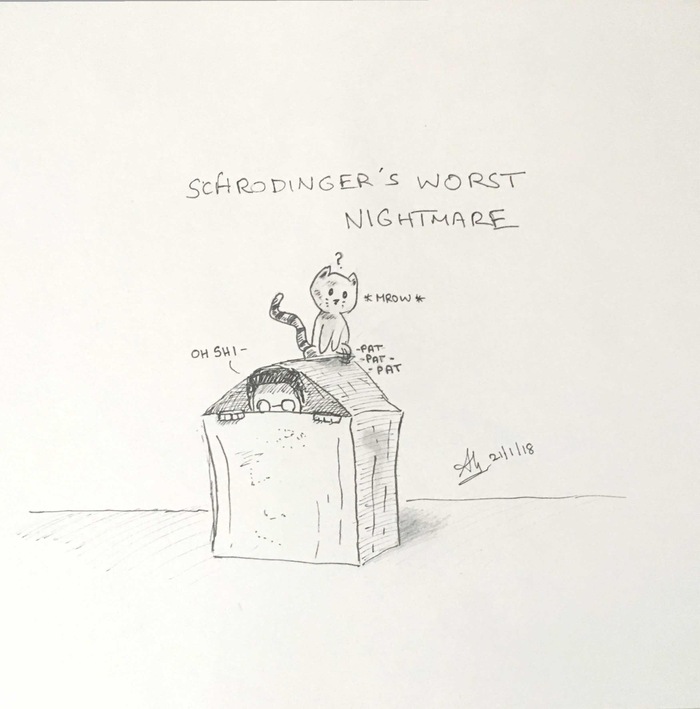 SCHRODINGER'S WORST
NIGHTMARE
?
* MROW *
OH SHI-
-PAT
-PAT-
-PAT
21/1/18